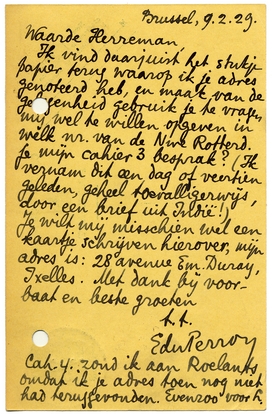 Brussel, 9.2.29.
Waarde Herreman,
Ik vind daarjuist het stukje
papier terug waarop ik je adres
genoteerd heb, en maak van de
gelegenheid gebruik je te vragen
mij wel te willen opgeven in
welk nr. van de Nwe Rotterd.
je mijn cahier 3 besprak? (Ik
vernam dit een dag of veertien
geleden, geheel toevalligerwijs,
door een brief uit Indië!)
Je wilt mij misschien wel een
kaartje schrijven hierover, mijn
adres is: 28 avenue Em. Duray,
Ixelles. Met dank bij voor-
baat en beste groeten
t.t.
EduPerron
Cah. 4. zond ik aan Roelants,
omdat ik je adres toen nog niet
had teruggevonden. Evenzoo voor